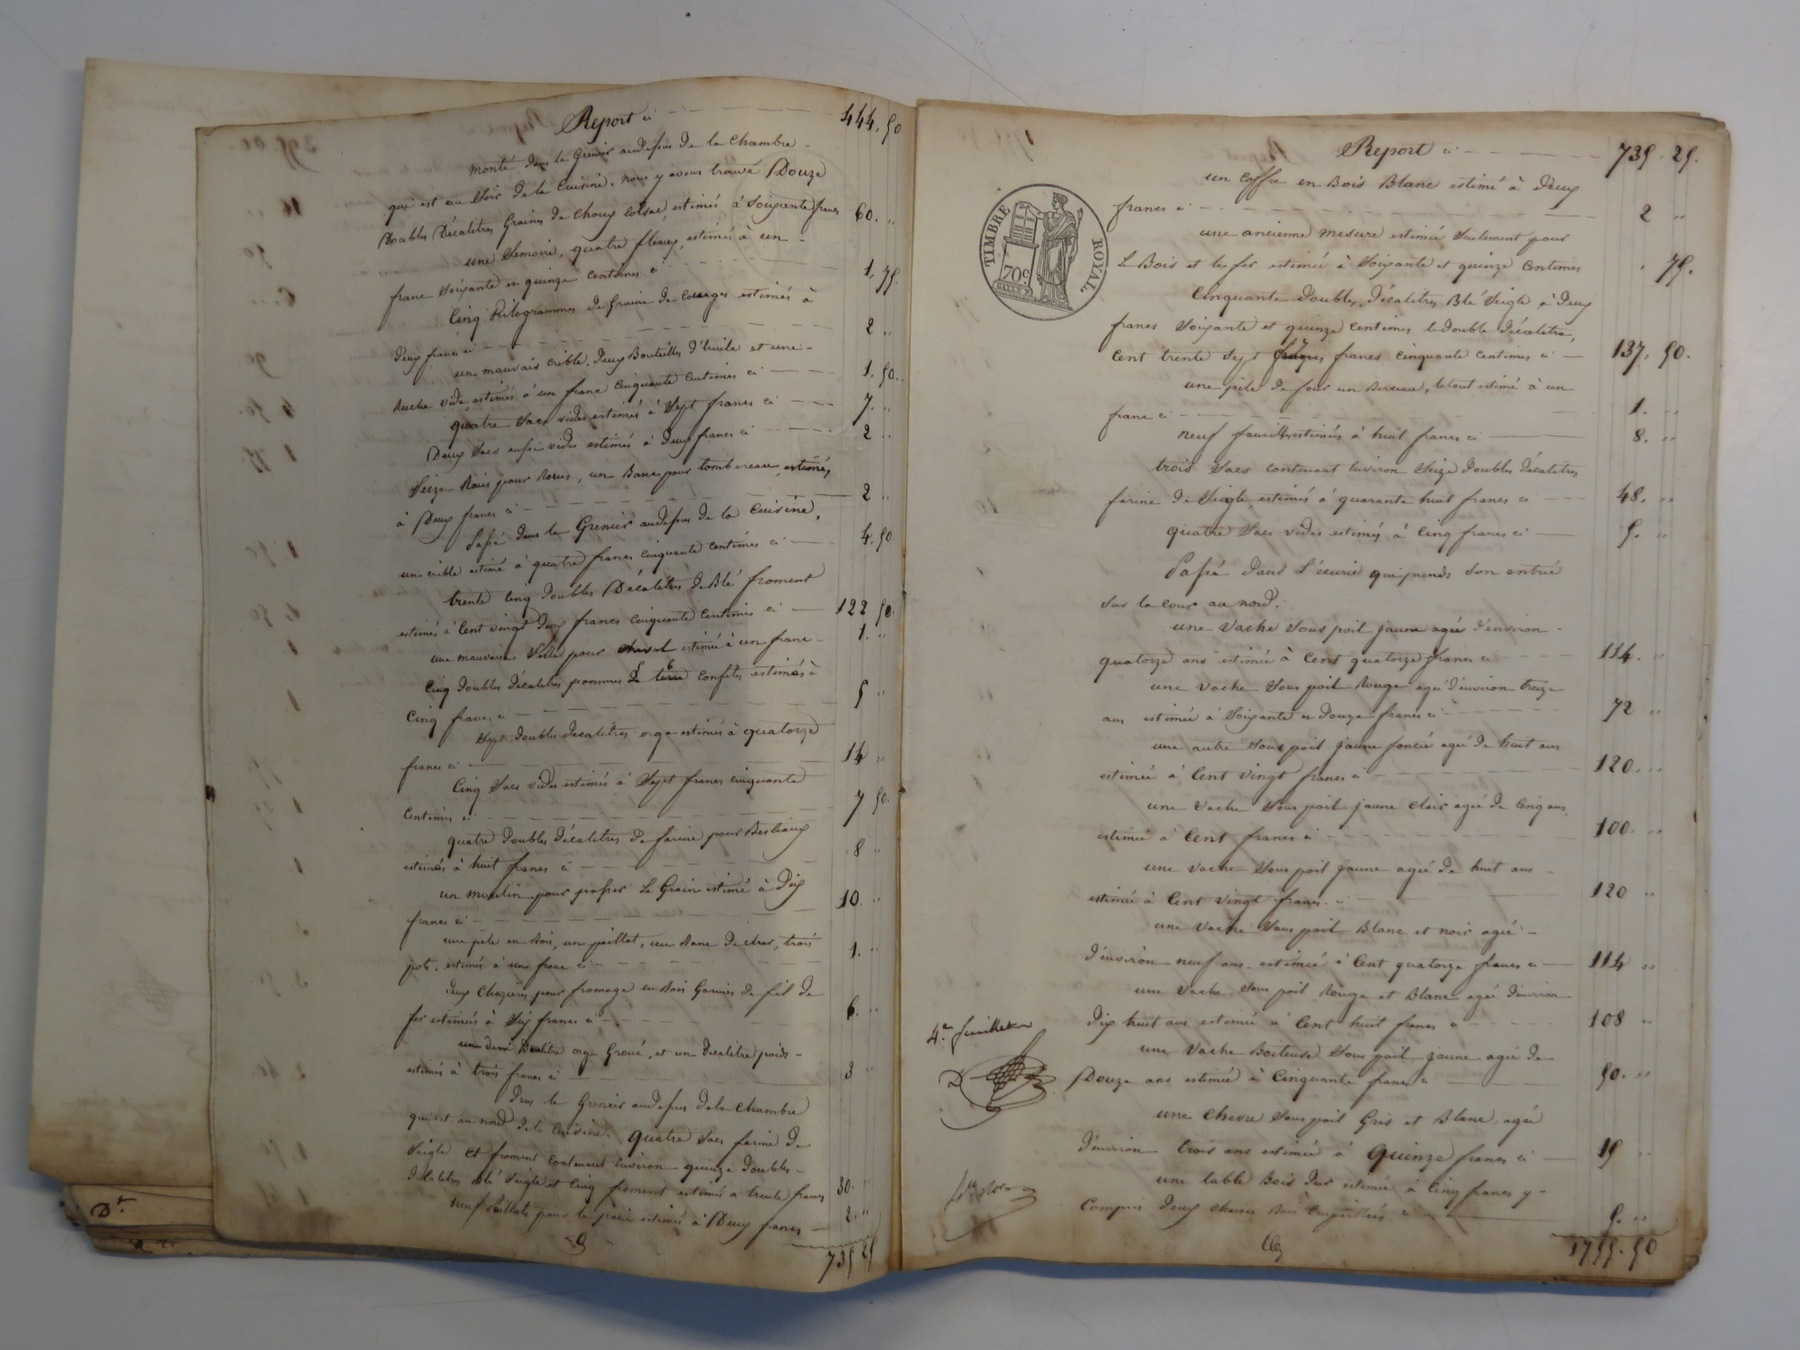 Report ci 444. 50
monté dans le Grenier audessus de la chambre
qui est au Soir de la Cuisine. nous y avons trouvé Douze
Doubles Décalitres Graines de Choux Colsac, estimés à Soixante francs 60. "
une Semoire, quatre fleaux, estimés à un
franc Soixante et quinze centimes ci 1. 75.
Cinq Kilogrammes de Graine de Courages estimés à
deux francs ci 2 "
un mauvais crible, deux Bouteilles d'huile et une
Ruche vide, estimés à un franc cinquante centimes ci 1. 50.
quatre Sacs vides estimés à Sept francs ci 7. "
Deux Sacs aussi vides estimés à deux francs ci 2 "
Seize Rais pour Roues, un Banc pour tombereau, estimés
à Deux francs ci 2 "
Passé dans le Grenier audessus de la Cuisine,
un crible estimé à quatre francs cinquante centimes ci 4. 50.
trente cinq doubles Décalitres de Blé froment
estimés à Cent vingt deux francs cinquante Centimes ci 122 50.
une mauvaise Selle pour cheval estimée à un franc 1. "
Cinq doubles décalitres pommes de terre confites estimés à
Cinq francs ci 5 "
Sept doubles décalitres orge estimés à quatorze
francs ci 14 "
Cinq Sacs vides estimés à Sept francs cinquante
Centimes ci 7 50.
quatre doubles décalitres de farine pour Bestiaux
estimés à huit francs ci 8 "
un moulin pour passer le Grain estimé à Dix
francs ci 10. "
une pile en Bois, un paillat, un Banc de char, trois
pots, estimés à un franc ci 1. "
deux Chazières pour fromage en Bois Garnies de fil de
fer estimés à Six francs ci 6. "
un demi Décalitre orge Groué, et un Décalitre poids
estimés à trois francs ci 3 "
Dans le Grenier audessus de la Chambre
qui est au nord de la Cuisine. quatre Sacs farine de
Seigle et froment contenant Environ quinze doubles
Décalitres blé Seigle et Cinq froment estimés à trente francs 30. "
neuf paillats pour le pain estimés à Deux francs 2. "
735 25
Dr
Report ci 735. 25.
un coffre en Bois Blanc estimé à deux
francs ci 2 "
TIMBRE ROYAL.
70c
une ancienne mesure estimée Seulement pour
le Bois et le fer estimée à Soixante et quinze Centimes . 75.
Cinquante doubles, Décalitres Blé Seigle à deux
francs Soixante et quinze Centimes le double décalitre,
Cent trente Sept francs cinquante centimes ci 137. 50.
une pile de four un Rureau, le tout estimé à un
franc ci 1. "
neuf faucilles estimés à huit francs ci 8. "
trois Sacs contenant Environ Seize doubles Décalitres
farine de Seigle, estimés à quarante huit francs ci 48. "
quatre Sacs vides estimés à Cinq francs ci 5. "
Passé dans L'écurie qui prends Son entrée
Sur la Cour au nord.
une Vache Sous poil jaune agée d'environ
quatorze ans estimée à Cent quatorze francs ci 114. "
une Vache Sous poil Rouge agé d'environ treize
ans estimée à Soixante et Douze francs ci 72 "
une autre Sous poil jaune foncée agé de huit ans
estimée à Cent Vingt francs ci 120. "
une Vache Sous poil jaune clair agée de Cinq ans,
estimée à Cent francs ci 100. "
une Vache Sous poil jaune agée de huit ans
estimée à Cent Vingt francs ci 120 "
une Vache Sous poil Blanc et noir agée
d'environ neuf ans estimée à Cent quatorze francs ci 114 "
une Vache Sous poil Rouge et Blanc agée d'environ
4e feuillet
dix huit ans estimée à Cent huit francs ci 108 "
une Vache Boiteuse Sous poil jaune agée de
Douze ans estimée à Cinquante francs ci 50. "
une Chevre Sous poil Gris et Blanc agée
d'environ trois ans estimée à Quinze francs ci 15 "
une table Bois dur estimée à Cinq francs y
Compris deux chaises Bois Empaillées. ci 5. "
1755. 50